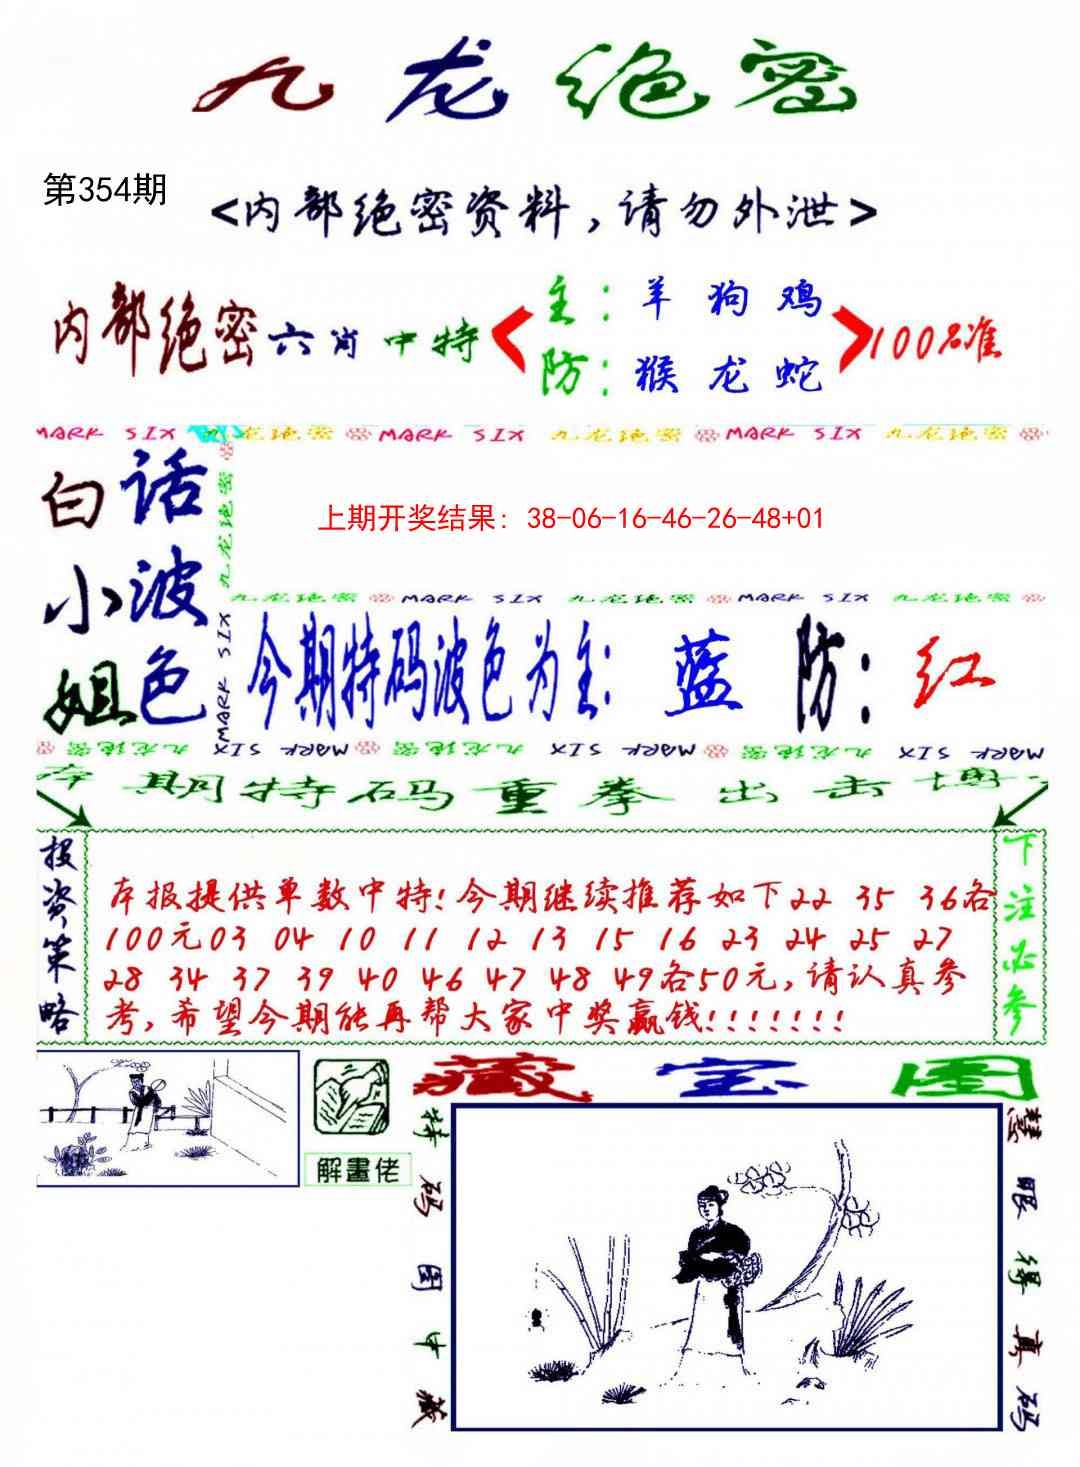 九龙绝密
第354期
<内部绝密资料，请勿外泄>
内部绝密六肖中特
主：羊 狗 鸡
防：猴 龙 蛇
100%准
MARK SIX 九龙绝密 MARK SIX 九龙绝密 MARK SIX 九龙绝密
白话
小波
姐色
九龙绝密
MARK SIX
上期开奖结果：38-06-16-46-26-48+01
九龙绝密 MARK SIX 九龙绝密 MARK SIX 九龙绝密
今期特码波色为主：蓝 防：红
九龙绝密 MARK SIX 九龙绝密 MARK SIX 九龙绝密 MARK SIX
本期特码重拳出击博
投资策略
本报提供单数中特!今期继续推荐如下22 35 36各
100元03 04 10 11 12 13 15 16 23 24 25 27
28 34 37 39 40 46 47 48 49各50元,请认真参
考,希望今期能再帮大家中奖赢钱!!!!!!!
下注必参
解畫佬
藏宝图
特码图中藏
慧眼得真码